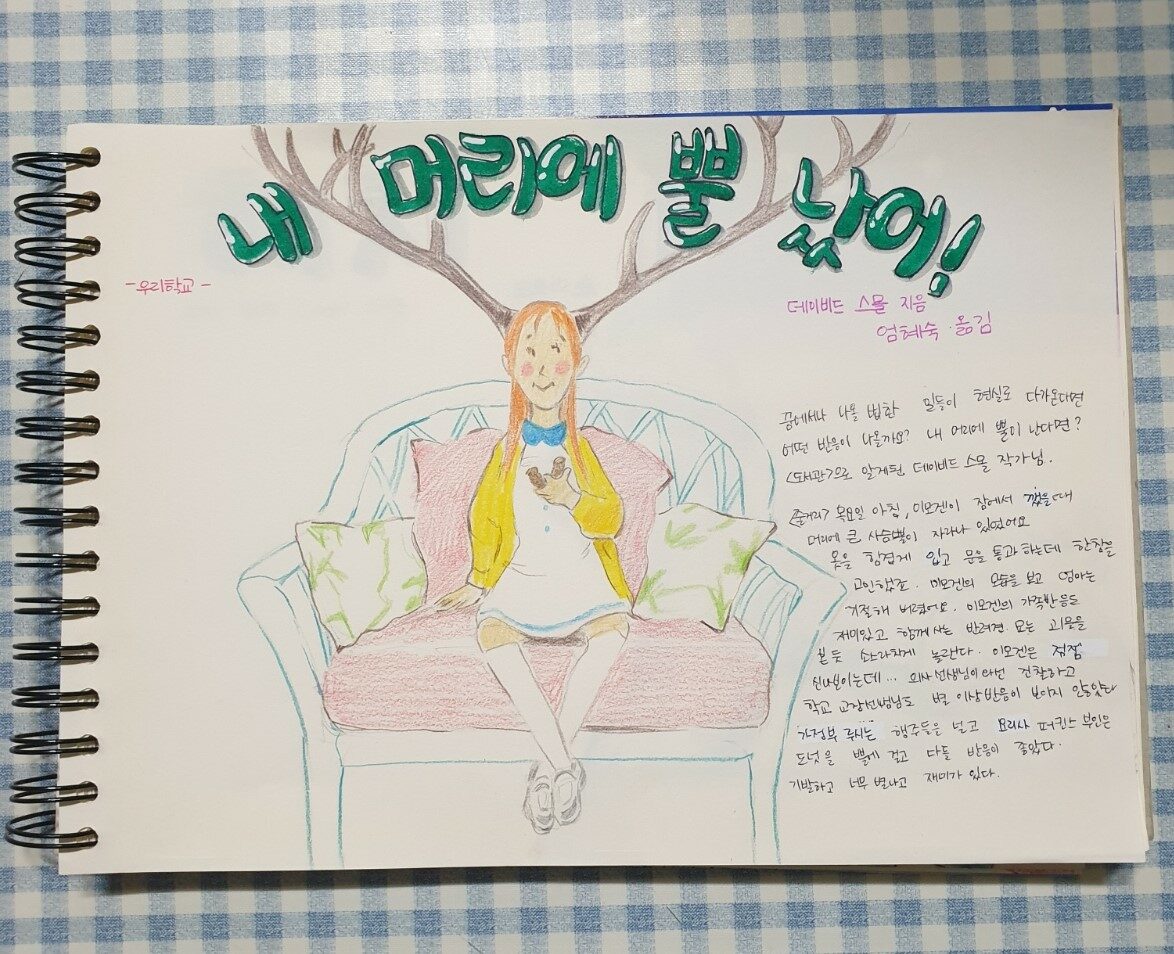 내 머리에 뿔 났어!
-우리학교-
데이비드 스몰 지음
엄혜숙·옮김
꿈에서나 나올 법한 일들이 현실로 다가온다면
어떤 반응이 나올까요? 내 머리에 뿔이 난다면?
<도서관>으로 알게된 데이비드 스몰 작가님.
<줄거리> 목요일 아침, 이모겐이 잠에서 깼을 때
머리에 큰 사슴뿔이 자라나 있었어요
옷을 힘겹게 입고 문을 통과하는데 한참을
고민했죠. 이모겐의 모습을 보고 엄마는
기절해 버렸어요. 이모겐의 가족반응도
재미있고 함께 사는 반려견 모는 괴물을
본 듯 소스라치게 놀란다. 이모겐은 점점
신나보이는데... 의사선생님이 와선 진찰하고
학교 교장선생님도 별 이상반응이 보이지 않았다
가정부 루시는 행주들을 널고 요리사 퍼킨스 부인은
도넛을 뿔에 걸고 다들 반응이 좋았다.
기발하고 너무 별나고 재미가 있다.